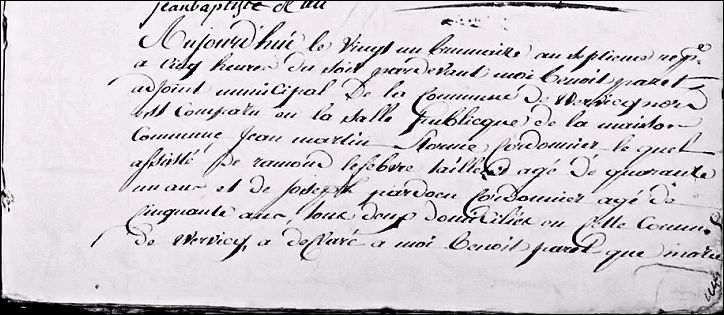 jeanbaptiste
Aujourdhui le vingt un brumaire an septieme rep.
a cinq heures du soir pardevant moi benoit paret
adjoint municipal De la Commune de Wervicq nord
est Comparu en la salle publicque de la maison
Commune Jean martin Cordonnier lequel
assisté De ramond lefebvre tailleur agé de quarante
un anc et de joseph pardoen Cordonnier agé de
Cinquante anc, tous deux domiciliés en cette Commune
De Wervicq, a declaré a moi benoit paret que marie